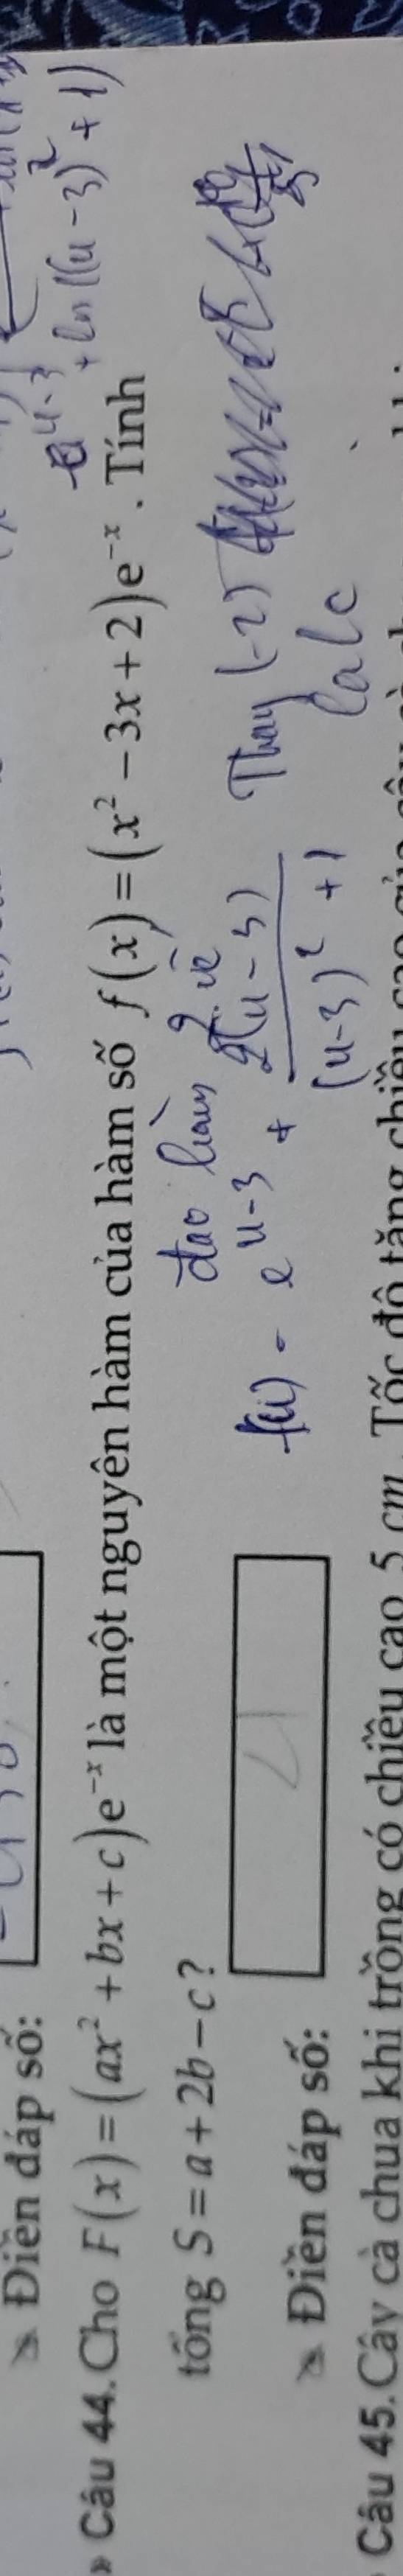 + ln((u-3)² + 1)
Điền đáp số:
» Câu 44. Cho F(x) = (ax² + bx + c)e⁻ˣ là một nguyên hàm của hàm số f(x) = (x² - 3x + 2)e⁻ˣ. Tính
tổng S = a + 2b - c?
đạo hàm 2 vế
f(u) = e^(u-3) + 2(u-3)/((u-3)² + 1)
Thay (-2)
Calc
Điền đáp số:
Câu 45. Cây cà chua khi trồng có chiều cao 5 cm. Tốc độ tăng chiều cao của cây